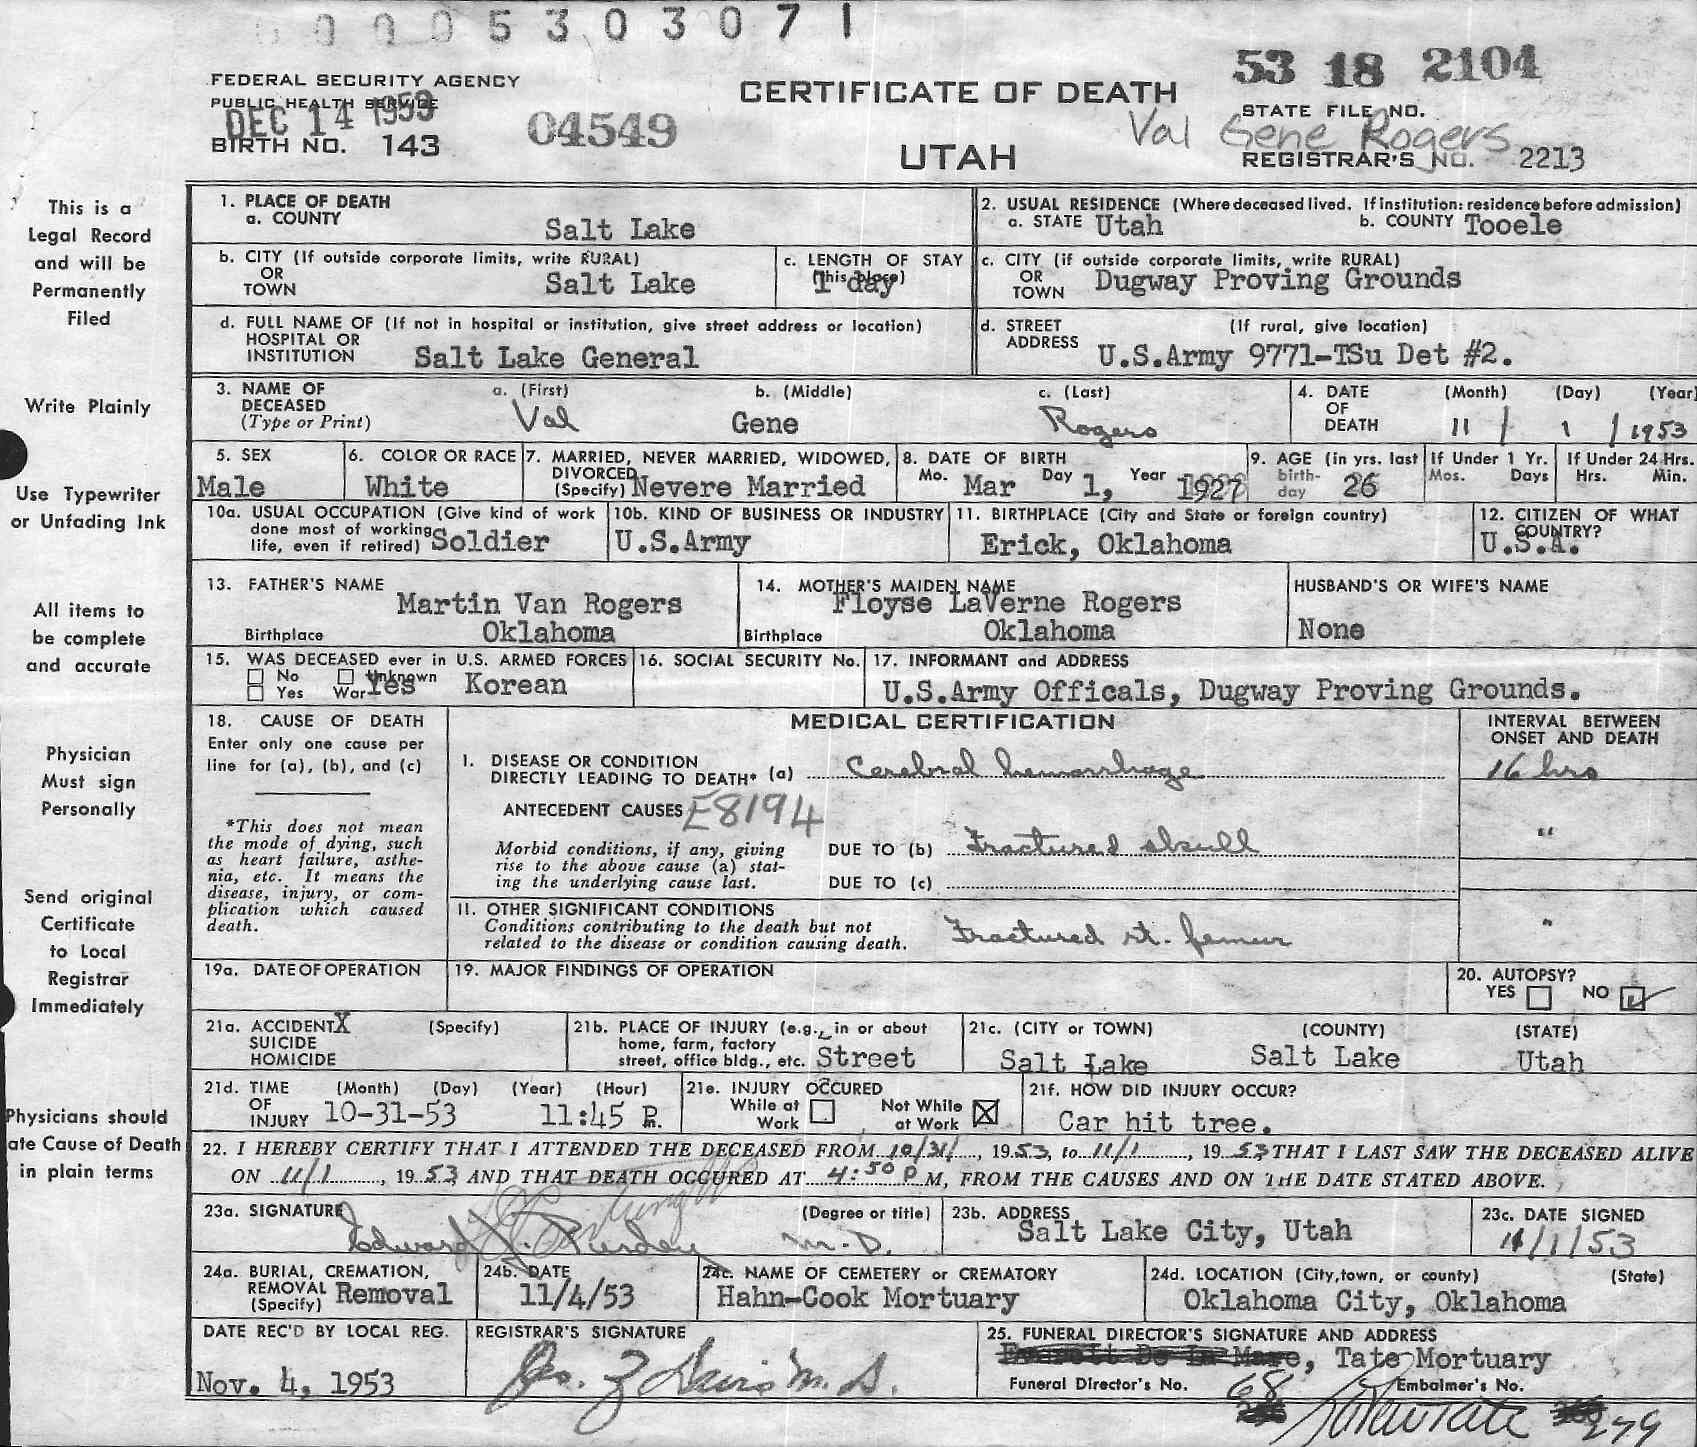 0 0 0 5 3 0 3 0 7 1
FEDERAL SECURITY AGENCY
PUBLIC HEALTH SERVICE
DEC 14 1953
BIRTH NO. 143
04549
CERTIFICATE OF DEATH
UTAH
53 18 2104
STATE FILE NO.
Val Gene Rogers
REGISTRAR'S NO. 2213
This is a
Legal Record
and will be
Permanently
Filed
Write Plainly
Use Typewriter
or Unfading Ink
All items to
be complete
and accurate
Physician
Must sign
Personally
Send original
Certificate
to Local
Registrar
Immediately
Physicians should
ate Cause of Death
in plain terms
1. PLACE OF DEATH
a. COUNTY Salt Lake
2. USUAL RESIDENCE (Where deceased lived. If institution: residence before admission)
a. STATE Utah b. COUNTY Tooele
b. CITY (If outside corporate limits, write RURAL)
OR
TOWN Salt Lake
c. LENGTH OF STAY
(this place)
1 day
c. CITY (if outside corporate limits, write RURAL)
OR
TOWN Dugway Proving Grounds
d. FULL NAME OF (If not in hospital or institution, give street address or location)
HOSPITAL OR
INSTITUTION Salt Lake General
d. STREET (If rural, give location)
ADDRESS U.S.Army 9771-TSu Det #2.
3. NAME OF a. (First) b. (Middle) c. (Last)
DECEASED
(Type or Print) Val Gene Rogers
4. DATE (Month) (Day) (Year)
OF
DEATH 11 / 1 / 1953
5. SEX
Male
6. COLOR OR RACE
White
7. MARRIED, NEVER MARRIED, WIDOWED,
DIVORCED
(Specify) Nevere Married
8. DATE OF BIRTH
Mo. Mar Day 1, Year 1927
9. AGE (in yrs. last
birth-
day 26
If Under 1 Yr.
Mos. Days
If Under 24 Hrs.
Hrs. Min.
10a. USUAL OCCUPATION (Give kind of work
done most of working
life, even if retired) Soldier
10b. KIND OF BUSINESS OR INDUSTRY
U.S.Army
11. BIRTHPLACE (City and State or foreign country)
Erick, Oklahoma
12. CITIZEN OF WHAT
COUNTRY?
U.S.A.
13. FATHER'S NAME
Martin Van Rogers
Birthplace Oklahoma
14. MOTHER'S MAIDEN NAME
Floyse LaVerne Rogers
Birthplace Oklahoma
HUSBAND'S OR WIFE'S NAME
None
15. WAS DECEASED ever in U.S. ARMED FORCES
No Unknown
Yes War Yes Korean
16. SOCIAL SECURITY No.
17. INFORMANT and ADDRESS
U.S.Army Officals, Dugway Proving Grounds.
18. CAUSE OF DEATH
Enter only one cause per
line for (a), (b), and (c)
*This does not mean
the mode of dying, such
as heart failure, asthe-
nia, etc. It means the
disease, injury, or com-
plication which caused
death.
MEDICAL CERTIFICATION
INTERVAL BETWEEN
ONSET AND DEATH
I. DISEASE OR CONDITION
DIRECTLY LEADING TO DEATH* (a) Cerebral hemorrhage 16 hrs
ANTECEDENT CAUSES E8194
Morbid conditions, if any, giving
rise to the above cause (a) stat-
ing the underlying cause last.
DUE TO (b) Fractured skull "
DUE TO (c)
II. OTHER SIGNIFICANT CONDITIONS
Conditions contributing to the death but not
related to the disease or condition causing death.
Fractured rt. femur "
19a. DATE OF OPERATION
19. MAJOR FINDINGS OF OPERATION
20. AUTOPSY?
YES NO
21a. ACCIDENT X (Specify)
SUICIDE
HOMICIDE
21b. PLACE OF INJURY (e.g., in or about
home, farm, factory
street, office bldg., etc. Street
21c. (CITY or TOWN) (COUNTY) (STATE)
Salt Lake Salt Lake Utah
21d. TIME (Month) (Day) (Year) (Hour)
OF
INJURY 10-31-53 11:45 P.m.
21e. INJURY OCCURED
While at Not While
Work at Work
21f. HOW DID INJURY OCCUR?
Car hit tree.
22. I HEREBY CERTIFY THAT I ATTENDED THE DECEASED FROM 10/31/, 1953, to 11/1, 1953 THAT I LAST SAW THE DECEASED ALIVE
ON 11/1, 1953 AND THAT DEATH OCCURED AT 4:50 P M, FROM THE CAUSES AND ON THE DATE STATED ABOVE.
23a. SIGNATURE (Degree or title)
Edward M.D.
23b. ADDRESS
Salt Lake City, Utah
23c. DATE SIGNED
11/1/53
24a. BURIAL, CREMATION,
REMOVAL
(Specify) Removal
24b. DATE
11/4/53
24c. NAME OF CEMETERY or CREMATORY
Hahn-Cook Mortuary
24d. LOCATION (City, town, or county) (State)
Oklahoma City, Oklahoma
DATE REC'D BY LOCAL REG.
Nov. 4, 1953
REGISTRAR'S SIGNATURE
Geo. Z Davis M.D.
25. FUNERAL DIRECTOR'S SIGNATURE AND ADDRESS
, Tate Mortuary
Funeral Director's No. 68 Embalmer's No.
279